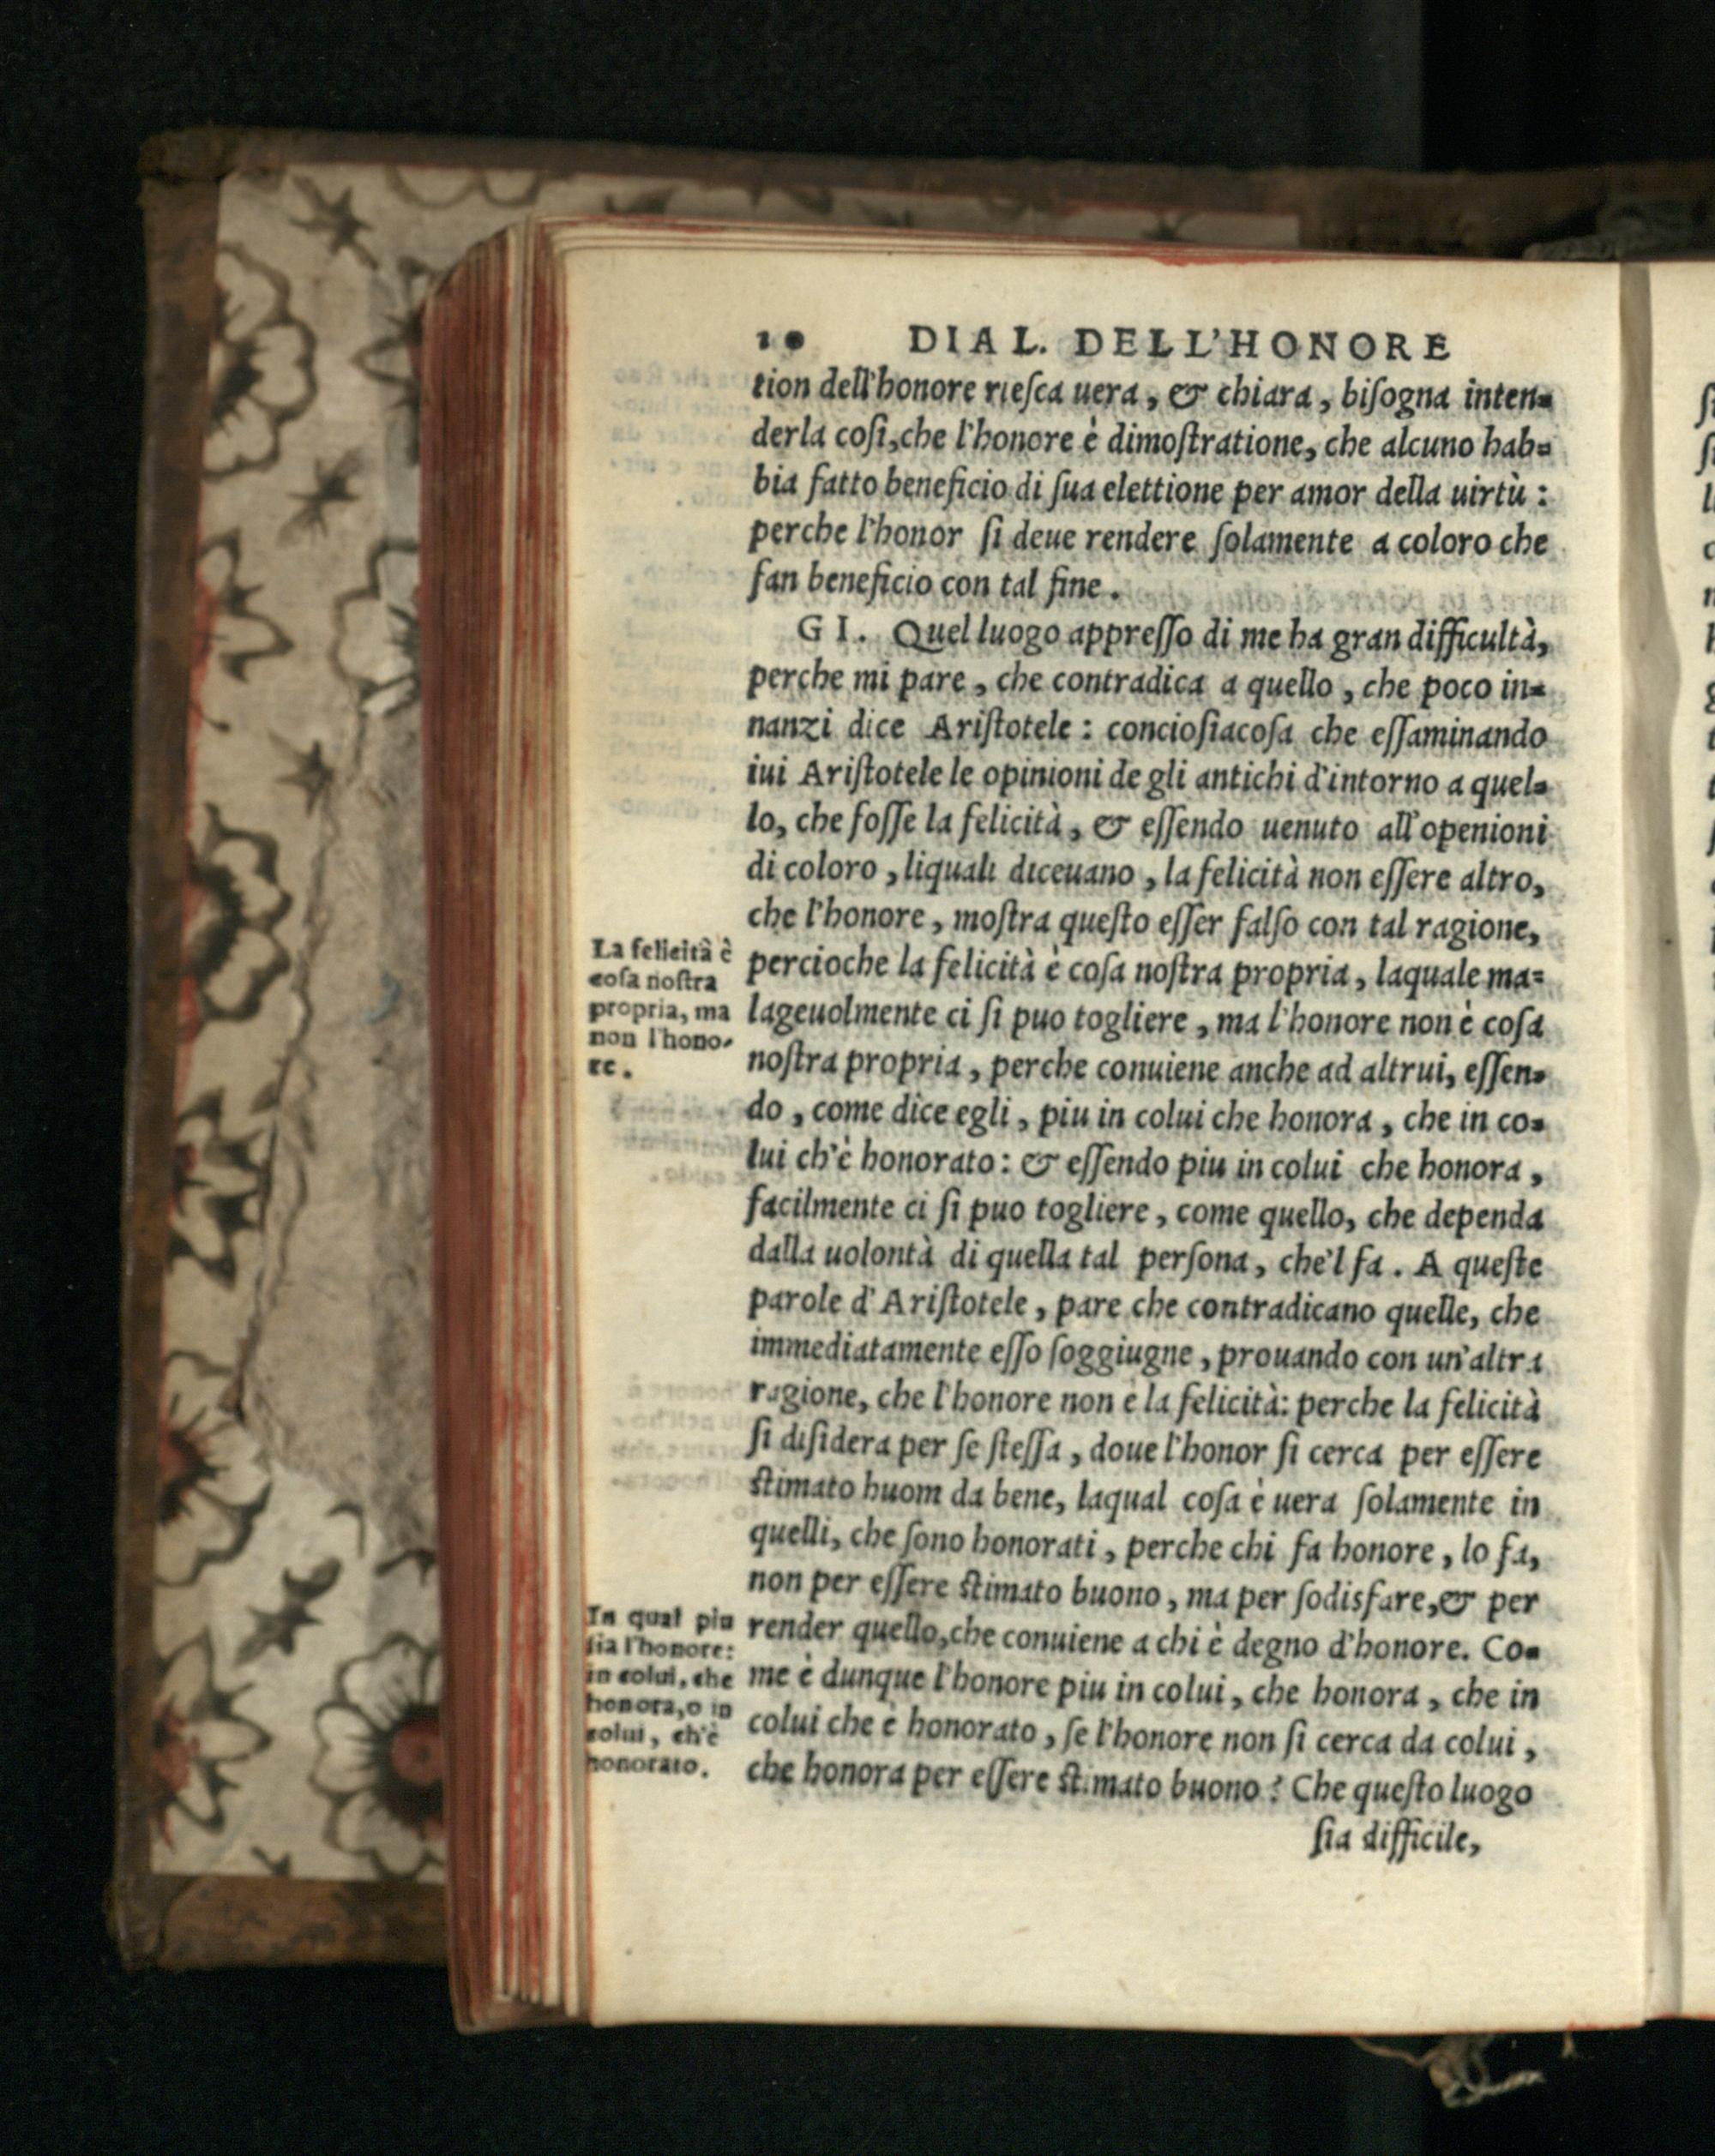 10 DIAL. DELL'HONORE
tion dell'honore rieſca uera, & chiara, biſogna inten=
derla coſi, che l'honore è dimoſtratione, che alcuno hab=
bia fatto beneficio di ſua elettione per amor della uirtù:
perche l'honor ſi deue rendere ſolamente a coloro che
fan beneficio con tal fine.
GI. Quel luogo appreſſo di me ha gran difficultà,
perche mi pare, che contradica a quello, che poco in=
nanzi dice Ariſtotele: concioſiacoſa che eſſaminando
iui Ariſtotele le opinioni de gli antichi d'intorno a quel=
lo, che foſſe la felicità, & eſſendo uenuto all'openioni
di coloro, liquali diceuano, la felicità non eſſere altro,
che l'honore, moſtra queſto eſſer falſo con tal ragione,
percioche la felicità è coſa noſtra propria, laquale ma=
lageuolmente ci ſi puo togliere, ma l'honore non è coſa
noſtra propria, perche conuiene anche ad altrui, eſſen=
do, come dice egli, piu in colui che honora, che in co=
lui ch'è honorato: & eſſendo piu in colui che honora,
facilmente ci ſi puo togliere, come quello, che dependa
dalla uolontà di quella tal perſona, che'l fa. A queſte
parole d'Ariſtotele, pare che contradicano quelle, che
immediatamente eſſo ſoggiugne, prouando con un'altra
ragione, che l'honore non è la felicità: perche la felicità
ſi diſidera per ſe ſteſſa, doue l'honor ſi cerca per eſſere
ſtimato huom da bene, laqual coſa è uera ſolamente in
quelli, che ſono honorati, perche chi fa honore, lo fa,
non per eſſere ſtimato buono, ma per ſodisfare, & per
render quello, che conuiene a chi è degno d'honore. Co=
me è dunque l'honore piu in colui, che honora, che in
colui che è honorato, ſe l'honore non ſi cerca da colui,
che honora per eſſere ſtimato buono? Che queſto luogo
ſia difficile,
La felicità è
coſa noſtra
propria, ma
non l'hono-
re.
In qual piu
ſia l'honore:
in colui, che
honora, o in
colui, ch'è
honorato.